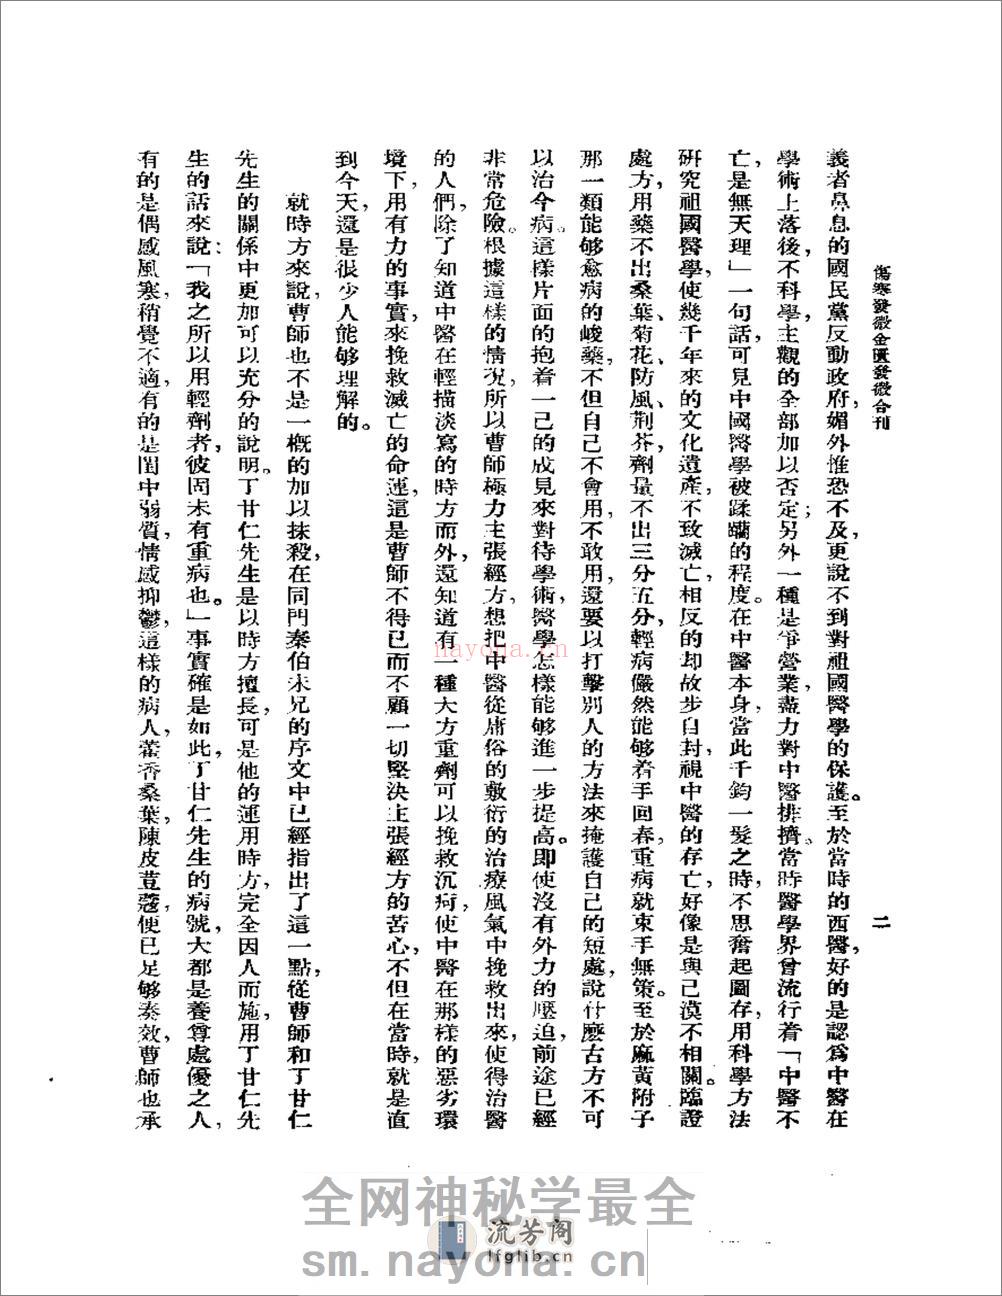 傷寒發微金匱發微合刊
二
義者鼻息的國民黨反動政府，媚外惟恐不及，更說不到對祖國醫學的保護。至於當時的西醫，好的是認爲中醫在
學術上落後，不科學，主觀的全部加以否定；另外一種是爭營業，盡力對中醫排擠。當時醫學界曾流行着「中醫不
亡，是無天理」一句話，可見中國醫學被蹂躪的程度。在中醫本身，當此千鈞一髮之時，不思奮起圖存，用科學方法
研究祖國醫學，使幾千年來的文化遺產，不致滅亡，相反的却故步自封，視中醫的存亡，好像是與己漠不相關。臨證
處方，用藥不出桑葉、菊花、防風、荆芥，劑量不出三分五分，輕病儼然能够着手回春，重病就束手無策。至於麻黃附子
那一類能够愈病的峻藥，不但自己不會用，不敢用，還要以打擊別人的方法來掩護自己的短處，說什麼古方不可
以治今病。這樣片面的抱着一己的成見來對待學術，醫學怎樣能够進一步提高。即使沒有外力的壓迫，前途已經
非常危險。根據這樣的情况，所以曹師極力主張經方，想把中醫從庸俗的敷衍的治療風氣中挽救出來，使得治醫
的人們，除了知道中醫在輕描淡寫的時方而外，還知道有一種大方重劑可以挽救沉疴，使中醫在那樣的惡劣環
境下，用有力的事實，來挽救滅亡的命運，這是曹師不得已而不顧一切堅決主張經方的苦心，不但在當時，就是直
到今天，還是很少人能够理解的。
就時方來說，曹師也不是一概的加以抹殺，在同門秦伯未兄的序文中已經指出了這一點，從曹師和丁甘仁
先生的關係中更加可以充分的說明。丁甘仁先生是以時方擅長，可是他的運用時方，完全因人而施，用丁甘仁先
生的話來說：「我之所以用輕劑者，彼固未有重病也。」事實確是如此，丁甘仁先生的病號，大都是養尊處優之人，
有的是偶感風寒，稍覺不適，有的是閨中弱質，情感抑鬱，這樣的病人，藿香桑葉，陳皮荳蔻，便已足够奏效，曹師也承
nayona.cn
全网神秘学最全
流芳阁
lfglib.cn
sm.nayona.cn